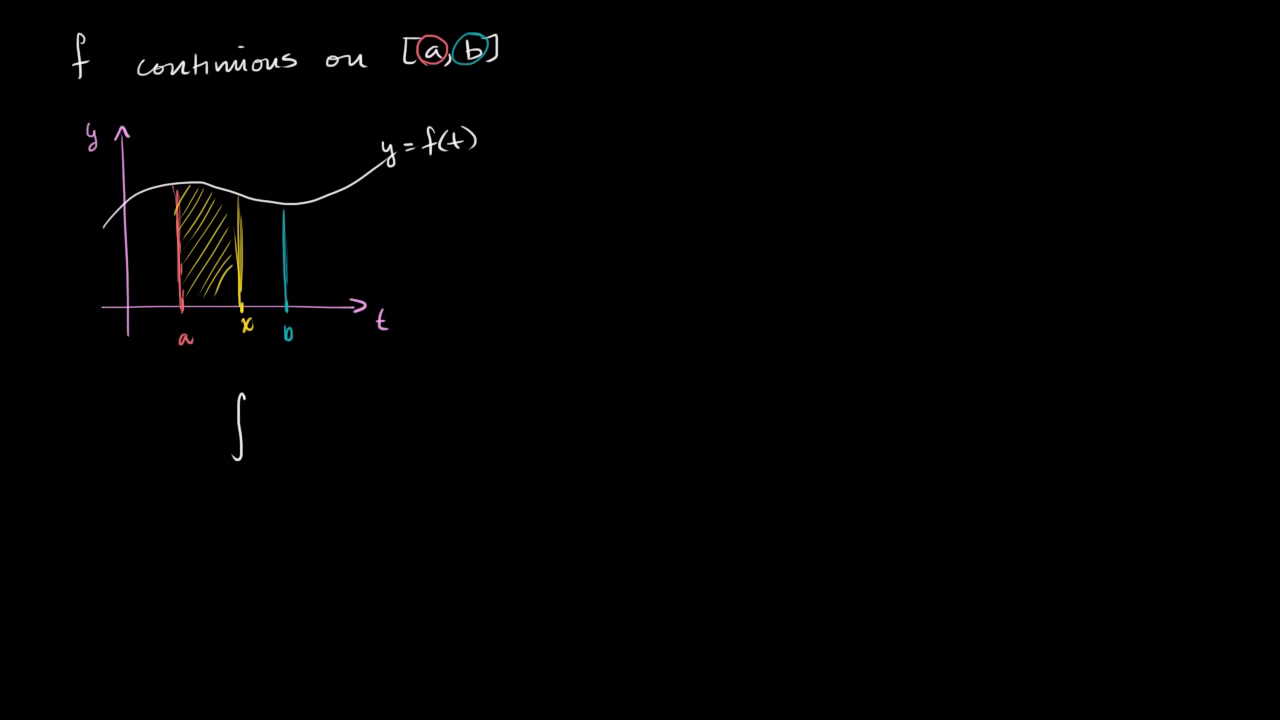 f continuous on [a,b]
y
y = f(t)
a
x
b
t
∫